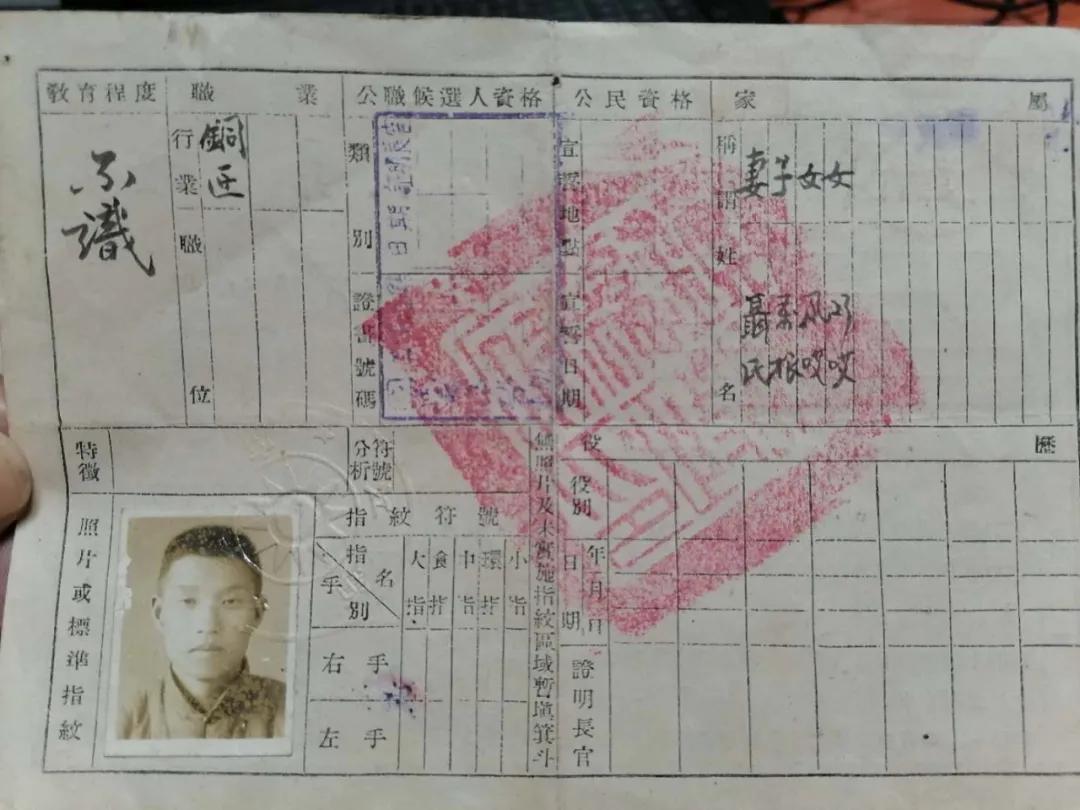 教育程度
不識
職業
行業
銅匠
職位
公職候選人資格
類別
證書號碼
公民資格
宣誓地點
宣誓日期
家屬
稱謂
妻 子 女 女
姓名
聶氏
根
特徵
符號分析
照片或標準指紋
指紋符號
指名
手別
大指
食指
中指
環指
小指
右手
左手
無照片及未實施指紋區域暫填箕斗
役歷
役別
日期
年月日
證明長官